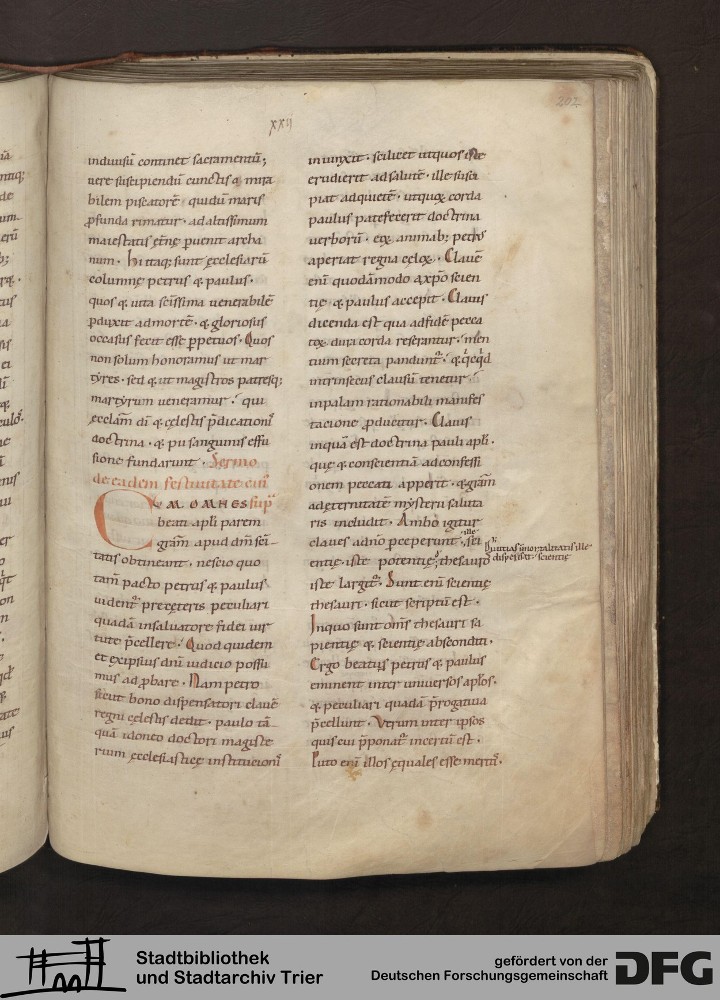 xxii
202
indiuisū continet sacramentū;
uere suscipiendū cunctis ⁊ mira
bilem piscatorē · quidū maris
ꝓfunda rimatur · ad altissimum
maiestatis ęt̄nę puenit archa
num · hi itaq; sunt ęcclesiarū
columnę petrus ⁊ paulus ·
quos ⁊ uita sc̄issima uenerabilē
ꝑduxit ad mortē · ⁊ gloriosus
occasus fecit esse ꝑpetuos · Quos
non solum honoramus ut mar
tyres · sed ⁊ ut magistros patresq;
martyrum ueneramur · qui
ęcclam̄ di ⁊ cęlestis p̄dicationi
doctrina · ⁊ pii sanguinis effu
sione fundarunt · Sermo
de eadem festiuitate eiusdem
CVM OMNES sup
beati apl̄i parem
grām̄ apud dm̄ sci
tatis obtineant · nescio quo
tam̄ pacto petrus ⁊ paulus
uident̄ pre cęteris peculiari
quadā in saluatore fidei uir
tute p̄cellere · Quod quidem
et ex ipsius dn̄i iudicio possu
mus adꝓbare · Nam petro
sicut bono dispensatori clauē
regni cęlestis dedit · paulo tā
quā idoneo doctori magiste
rium ęcclesiasticę institucioni
iniunxit · scilicet ut quos iste
erudierit ad salutē · ille susci
piat ad quietē · ut quoꝝ corda
paulus patefecerit doctrina
uerborū · eoꝝ animab; petrus
aperiat regna cęloꝝ · Clauē
enī quodāmodo a xp̄o scien
tię ⁊ paulus accepit · Clauis
dicenda est qua ad fidē pecca
toꝝ dura corda reserantur · men
tium secreta pandunt̄ · ⁊ q̇cq̇d
intrinsecus clausū tenetur
in palam rationabili manifes
tacione ꝓducitur · Clauis
inquā est doctrina pauli apl̄i ·
quę ⁊ conscientiā ad confessi
onem peccati apperit · ⁊ grām̄
ad ęternitatē mysterii saluta
ris includit · Ambo igitur
claues a dn̄o perceperunt · ille sci
entię iste potentię · thesauro
diuitias īmortalitatis ille
dispensat · scientię
iste largit̄ · Sunt enī scientię
thesauri · sicut scriptū est ·
In quo sunt om̄s thesauri sa
pientię ⁊ scientię absconditi ·
Ergo beatus petrus ⁊ paulus
eminent inter uniuersos apl̄os ·
⁊ peculiari quadā p̄rogatiua
p̄cellunt · Verum inter ipsos
quis cui p̄ponat̄ incertū est ·
Puto enī illos ęquales esse meritis ·
Stadtbibliothek
und Stadtarchiv Trier
gefördert von der
Deutschen Forschungsgemeinschaft
DFG